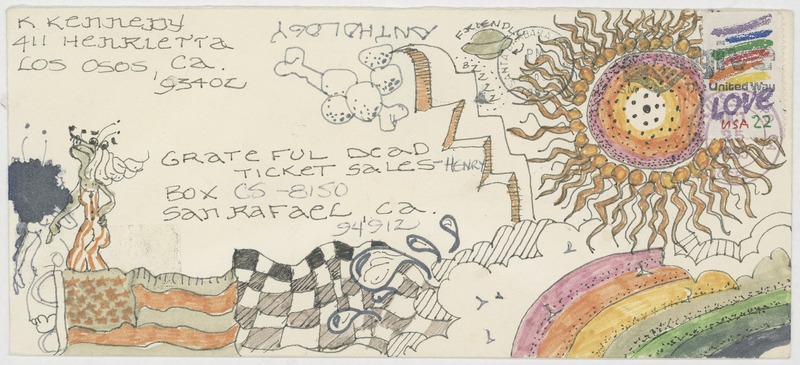 K KENNEDY
411 HENRIETTA
LOS OSOS, CA.
93402
ANTHOLOGY
GRATEFUL DEAD
TICKET SALES-HENRY
BOX CS-8150
SAN RAFAEL CA.
94912
United Way
LOVE
USA 22